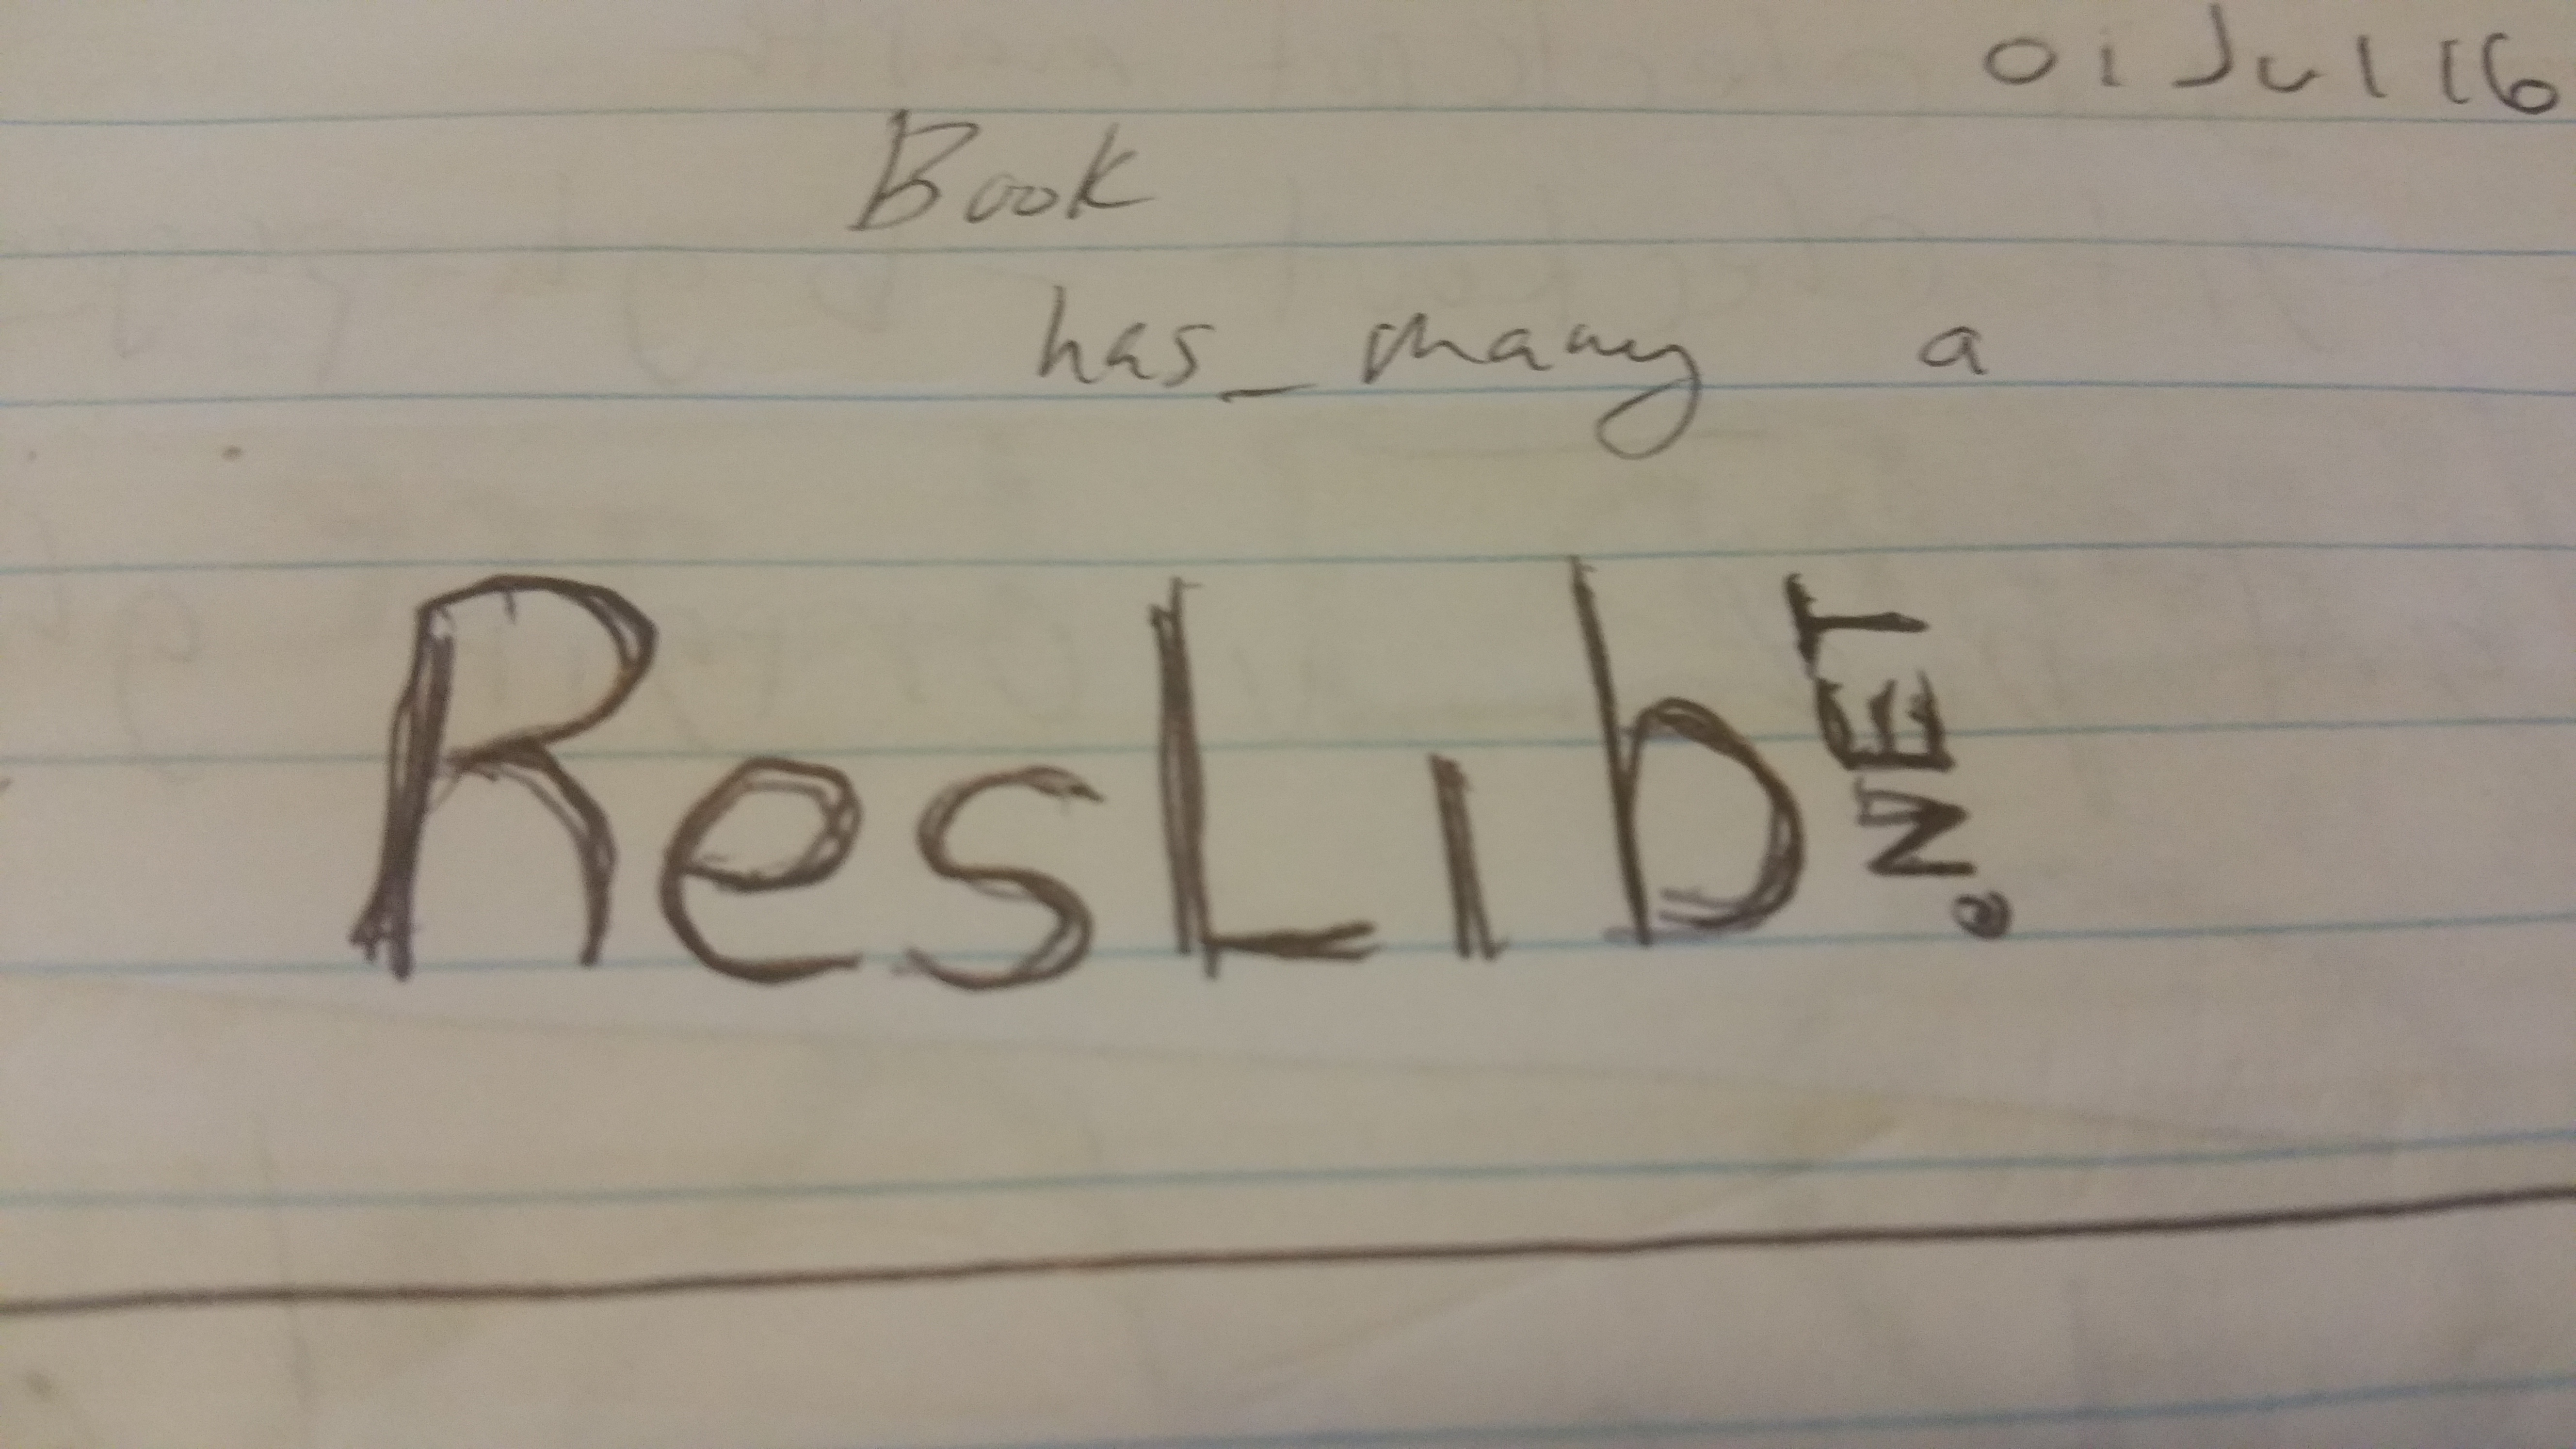 01 Jul 16
Book
has_many a
ResLib.NET